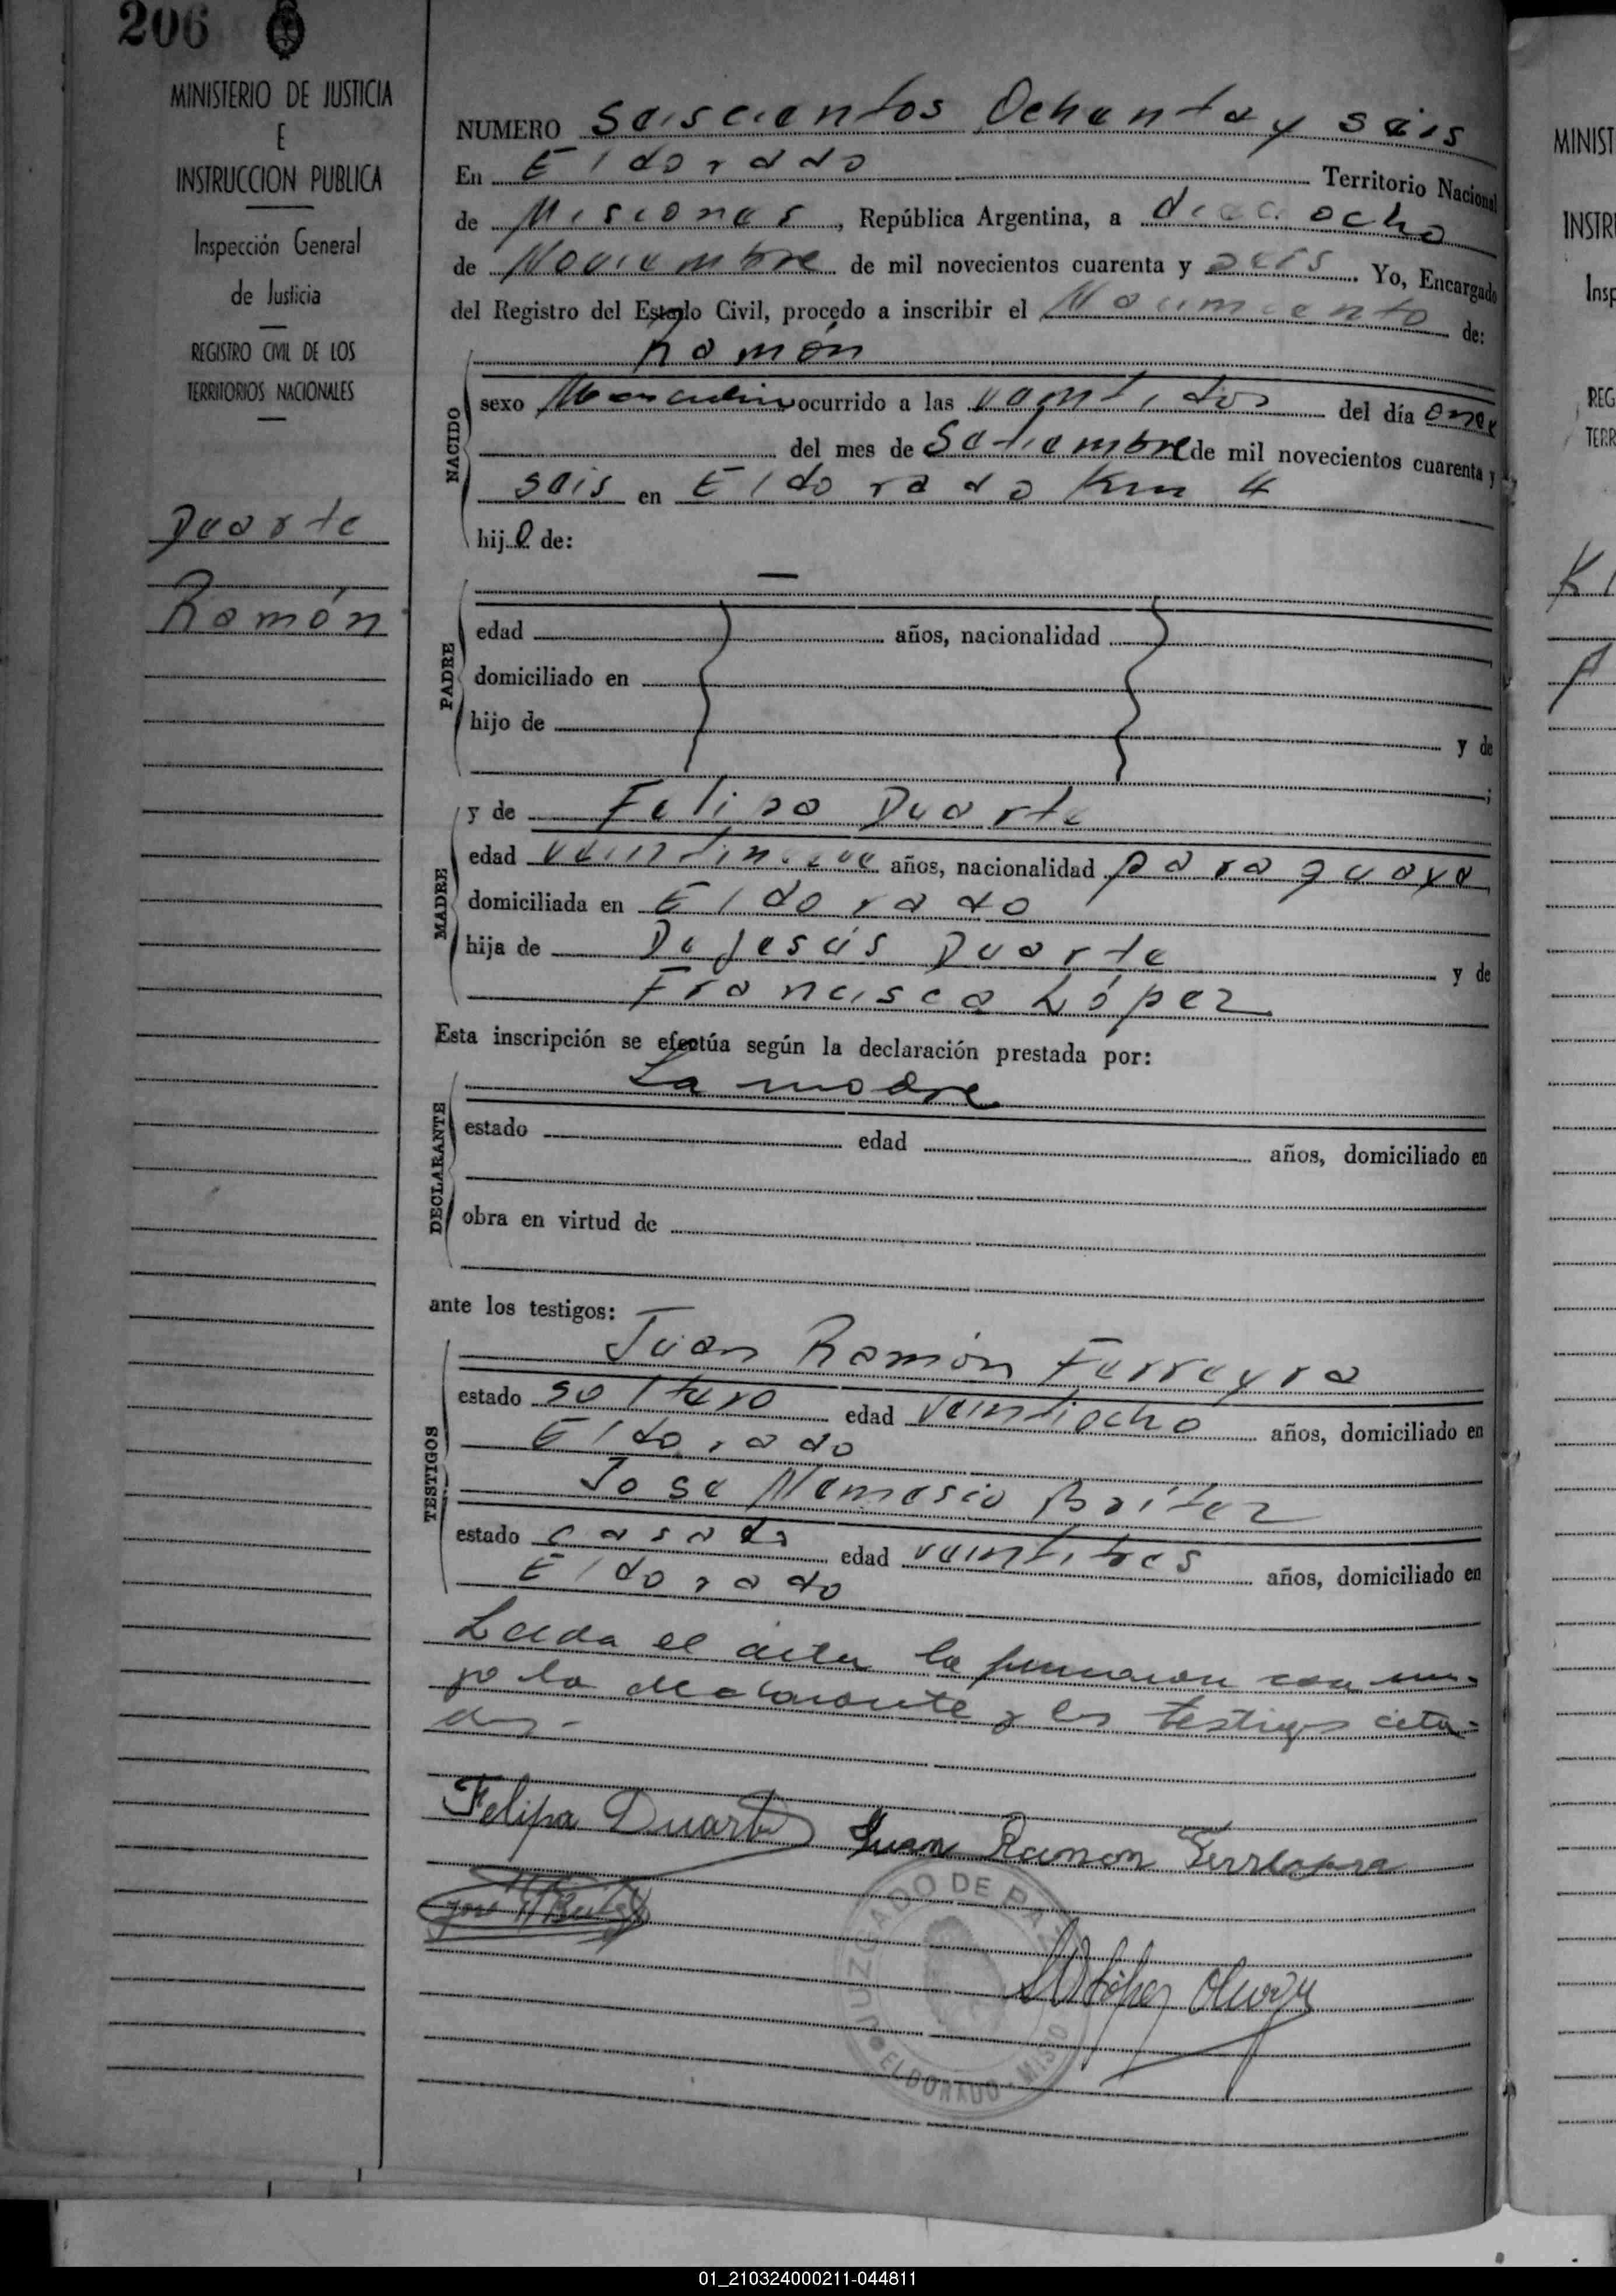 206
MINISTERIO DE JUSTICIA
E
INSTRUCCION PUBLICA
Inspección General
de Justicia
REGISTRO CIVIL DE LOS
TERRITORIOS NACIONALES
Duarte
Ramón
NUMERO Seiscientos Ochenta y seis
En Eldorado Territorio Nacional
de Misiones, República Argentina, a dieciocho
de Noviembre de mil novecientos cuarenta y seis. Yo, Encargado
del Registro del Estado Civil, procedo a inscribir el Nacimiento de:
Ramón
NACIDO
sexo Masculino ocurrido a las veintidos del día once
del mes de Setiembre de mil novecientos cuarenta y
seis en Eldorado Km 4
hijo de:
PADRE
edad años, nacionalidad
domiciliado en
hijo de y de
;
MADRE
y de Felipa Duarte
edad veintinueve años, nacionalidad paraguaya
domiciliada en Eldorado
hija de De Jesús Duarte y de
Francisca López
Esta inscripción se efectúa según la declaración prestada por:
La madre
DECLARANTE
estado edad años, domiciliado en
obra en virtud de
ante los testigos:
TESTIGOS
Juan Ramón Ferreyra
estado soltero edad veintiocho años, domiciliado en
Eldorado
José Nemesio Brítez
estado casado edad veintitres años, domiciliado en
Eldorado
Leida el acta la firmaron con mi-
go la declarante y los testigos cita-
dos.-
Felipa Duarte Juan Ramon Ferreyra
JUZGADO DE PAZ
ELDORADO - MISIO
López
MINIST
INSTR
Insp
REG
TERR
01_210324000211-044811